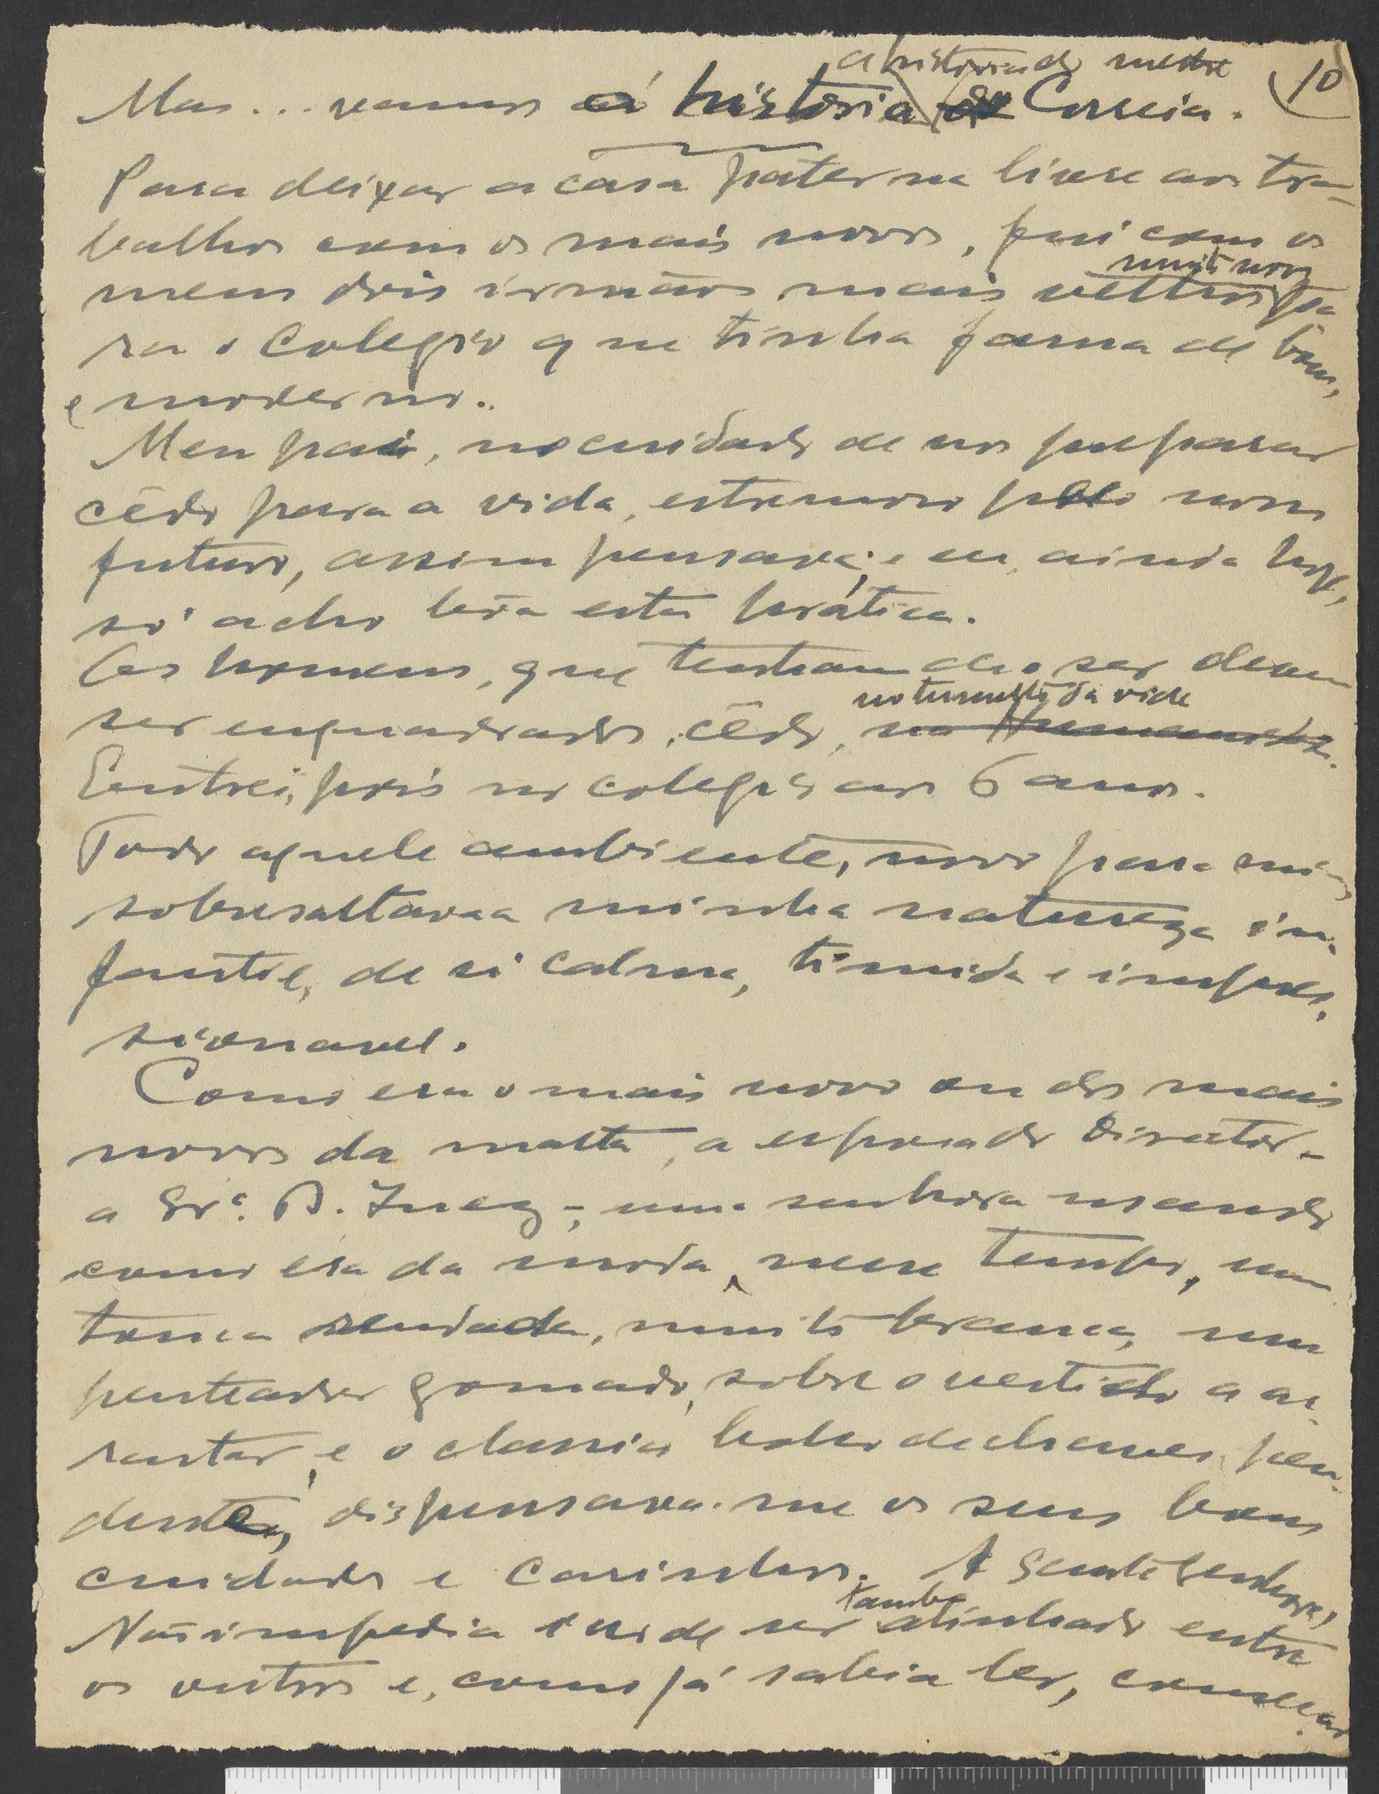 a historia de mestre
10
Mas... vamos á historia de Correia.
Para deixar a casa paterna livre aos tra-
balhos com os mais novos, fui com os
muito novo
meus dois irmãos mais velhos pa
ra o Colegio que tinha fama de bom,
e moderno.
Meu pai, no cuidado de nos preparar
cêdo para a vida, estremoso pelo nosso
futuro, assim pensava; e eu, ainda hoje,
só acho bôa esta prática.
Os homens, que tenham de o ser devem
no tumulto da vida
ser enquadrados, cêdo,
Entrei, pois no colegio aos 6 anos.
Todo aquele ambiente, novo para mim,
sobresaltava a minha natureza in-
fantil, de si calma, timida e impres-
sionavel.
Como era o mais novo ou dos mais
novos da malta, a esposa do Director -
a Srª. D. Ignez -, uma senhora usando
como era da moda, nesse tempo, uma
touca rendada, muito branca, um
penteador gomado, sobre o vestido a ar-
rastar, e o classico bolso de chaves pen-
dente, dispensava-me os seus bons
cuidados e carinhos. A Santa Senhora,
tambem
Não impedia isso de ser alinhado entre
os outros e, como já sabia ler, comecar